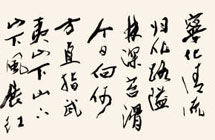 寧化清流
归化路隘
林深苔滑
今日向何
方直指武
夷山下山下
山下風展红